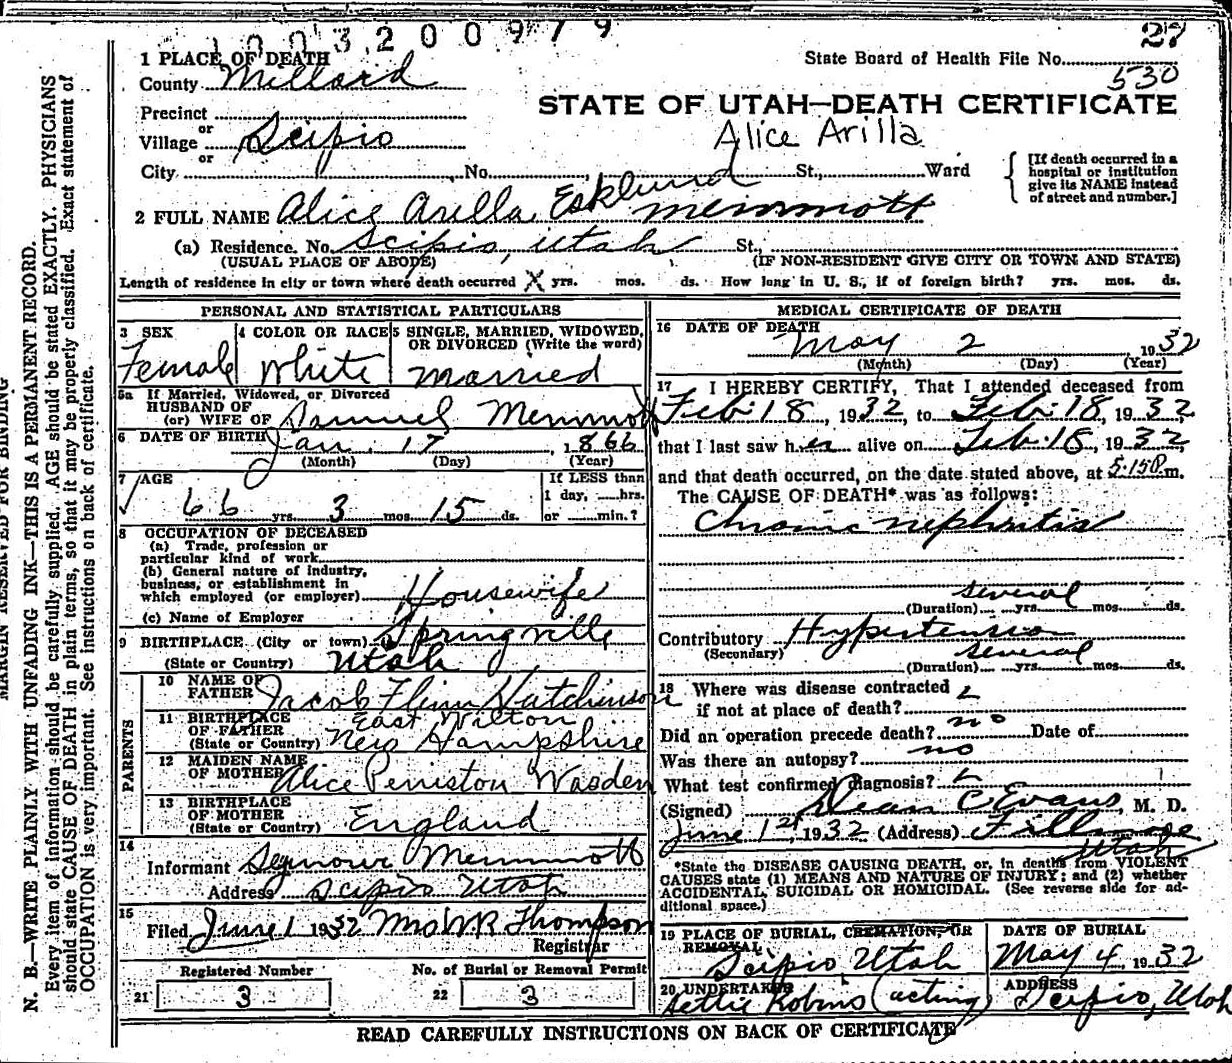 1003200979
27
1 PLACE OF DEATH
State Board of Health File No.
County Millard
530
STATE OF UTAH—DEATH CERTIFICATE
Precinct
or
Village Scipio
Alice Arilla
or
City No. St., Ward
[If death occurred in a hospital or institution give its NAME instead of street and number.]
2 FULL NAME Alice Arilla Esklund Memmott
(a) Residence. No. Scipio, Utah St.,
(USUAL PLACE OF ABODE) (IF NON-RESIDENT GIVE CITY OR TOWN AND STATE)
Length of residence in city or town where death occurred X yrs. mos. ds. How long in U. S., if of foreign birth? yrs. mos. ds.
PERSONAL AND STATISTICAL PARTICULARS
3 SEX
Female
4 COLOR OR RACE
White
5 SINGLE, MARRIED, WIDOWED, OR DIVORCED (Write the word)
Married
5a If Married, Widowed, or Divorced
HUSBAND OF
(or) WIFE OF Samuel Memmott
6 DATE OF BIRTH Jan. 17, 1866
(Month) (Day) (Year)
7 AGE
66 yrs. 3 mos. 15 ds.
If LESS than
1 day, hrs.
or min.?
8 OCCUPATION OF DECEASED
(a) Trade, profession or
particular kind of work
(b) General nature of industry,
business, or establishment in
which employed (or employer) Housewife
(c) Name of Employer
9 BIRTHPLACE (City or town) Springville
(State or Country) Utah
PARENTS
10 NAME OF
FATHER Jacob Flinn Hutchinson
11 BIRTHPLACE East Wilton
OF FATHER
(State or Country) New Hampshire
12 MAIDEN NAME
OF MOTHER Alice Peniston Wasden
13 BIRTHPLACE
OF MOTHER
(State or Country) England
14
Informant Seymour Memmott
Address Scipio Utah
15
Filed June 1 1932 Mrs W R Thompson
Registrar
Registered Number No. of Burial or Removal Permit
21 3 22 3
MEDICAL CERTIFICATE OF DEATH
16 DATE OF DEATH
May 2 1932
(Month) (Day) (Year)
17 I HEREBY CERTIFY, That I attended deceased from
Feb. 18, 1932 to Feb. 18, 1932
that I last saw her alive on Feb. 18, 1932,
and that death occurred, on the date stated above, at 5:15 P.m.
The CAUSE OF DEATH* was as follows:
Chronic nephritis
several
(Duration) yrs. mos. ds.
Contributory Hypertension
(Secondary) several
(Duration) yrs. mos. ds.
18 Where was disease contracted
if not at place of death?
Did an operation precede death? no Date of
Was there an autopsy? no
What test confirmed diagnosis?
(Signed) Dean C Evans, M. D.
June 1st, 1932 (Address) Fillmore
Utah
*State the DISEASE CAUSING DEATH, or, in deaths from VIOLENT
CAUSES state (1) MEANS AND NATURE OF INJURY; and (2) whether
ACCIDENTAL, SUICIDAL OR HOMICIDAL. (See reverse side for ad-
ditional space.)
19 PLACE OF BURIAL, CREMATION, OR
REMOVAL
Scipio, Utah
DATE OF BURIAL
May 4, 1932
20 UNDERTAKER
Settie Robins (acting)
ADDRESS
Scipio, Utah
READ CAREFULLY INSTRUCTIONS ON BACK OF CERTIFICATE
MARGIN RESERVED FOR BINDING
N. B.—WRITE PLAINLY WITH UNFADING INK—THIS IS A PERMANENT RECORD.
Every item of information should be carefully supplied. AGE should be stated EXACTLY. PHYSICIANS
should state CAUSE OF DEATH in plain terms, so that it may be properly classified. Exact statement of
OCCUPATION is very important. See instructions on back of certificate.